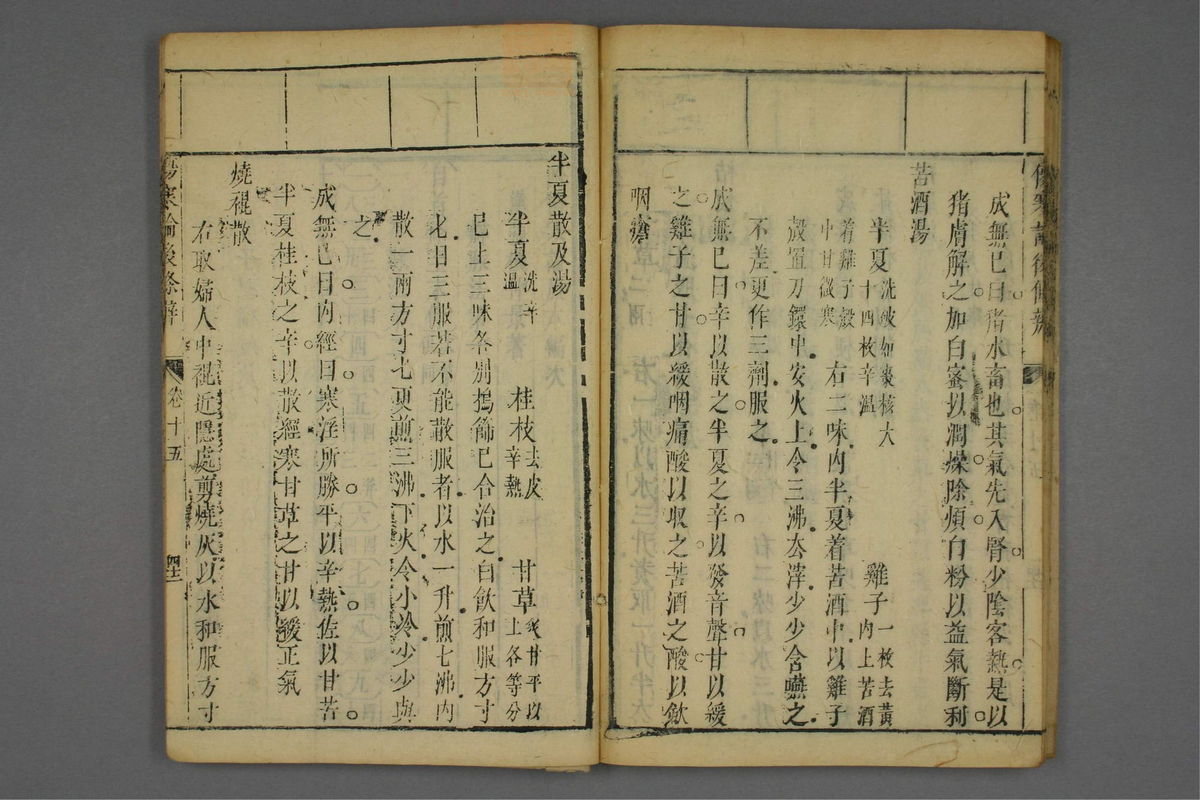 成無已曰猪水畜也其氣先入腎少陰客熱是以
猪膚解之加白蜜以潤燥除煩白粉以益氣斷利
苦酒湯
半夏洗破如棗核大十四枚辛溫
雞子一枚去黃內上苦酒着雞子殼中甘微寒
右二味內半夏着苦酒中以雞子
殼置刀鐶中安火上令三沸去滓少少含嚥之
不差更作三劑服之
成無已曰辛以散之半夏之辛以發音聲甘以緩
之雞子之甘以緩咽痛酸以收之苦酒之酸以斂
咽瘡
半夏散及湯
半夏洗辛溫
桂枝去皮辛熱
甘草炙甘平以上各等分
已上三味各別搗篩已合治之白飲和服方寸
匕日三服若不能散服者以水一升煎七沸內
散一兩方寸匕更煎三沸下火令小冷少少與
之
成無已曰內經曰寒淫所勝平以辛熱佐以甘苦
半夏桂枝之辛以散經寒甘草之甘以緩正氣
燒裩散
右取婦人中裩近隱處剪燒灰以水和服方寸
傷寒論後條辯
卷十五